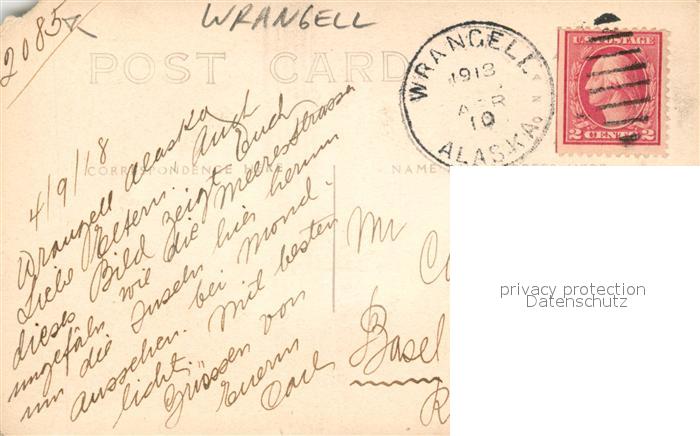 2085
WRANGELL
POST CARD
WRANGELL
1918
APR
10
ALASKA
U.S. POSTAGE
2 CENTS 2
CORRESPONDENCE HERE
NAME
4/9/18
Wrangell Alaska
Liebe Eltern.
dieses Bild zeigt Euch
ungefähr wie die Meeresstrasse
um die Inseln hier herum
aussehen. bei Mond-
licht. Mit besten
Grüssen von
Euerm
Carl
Mr
Basel
privacy protection
Datenschutz